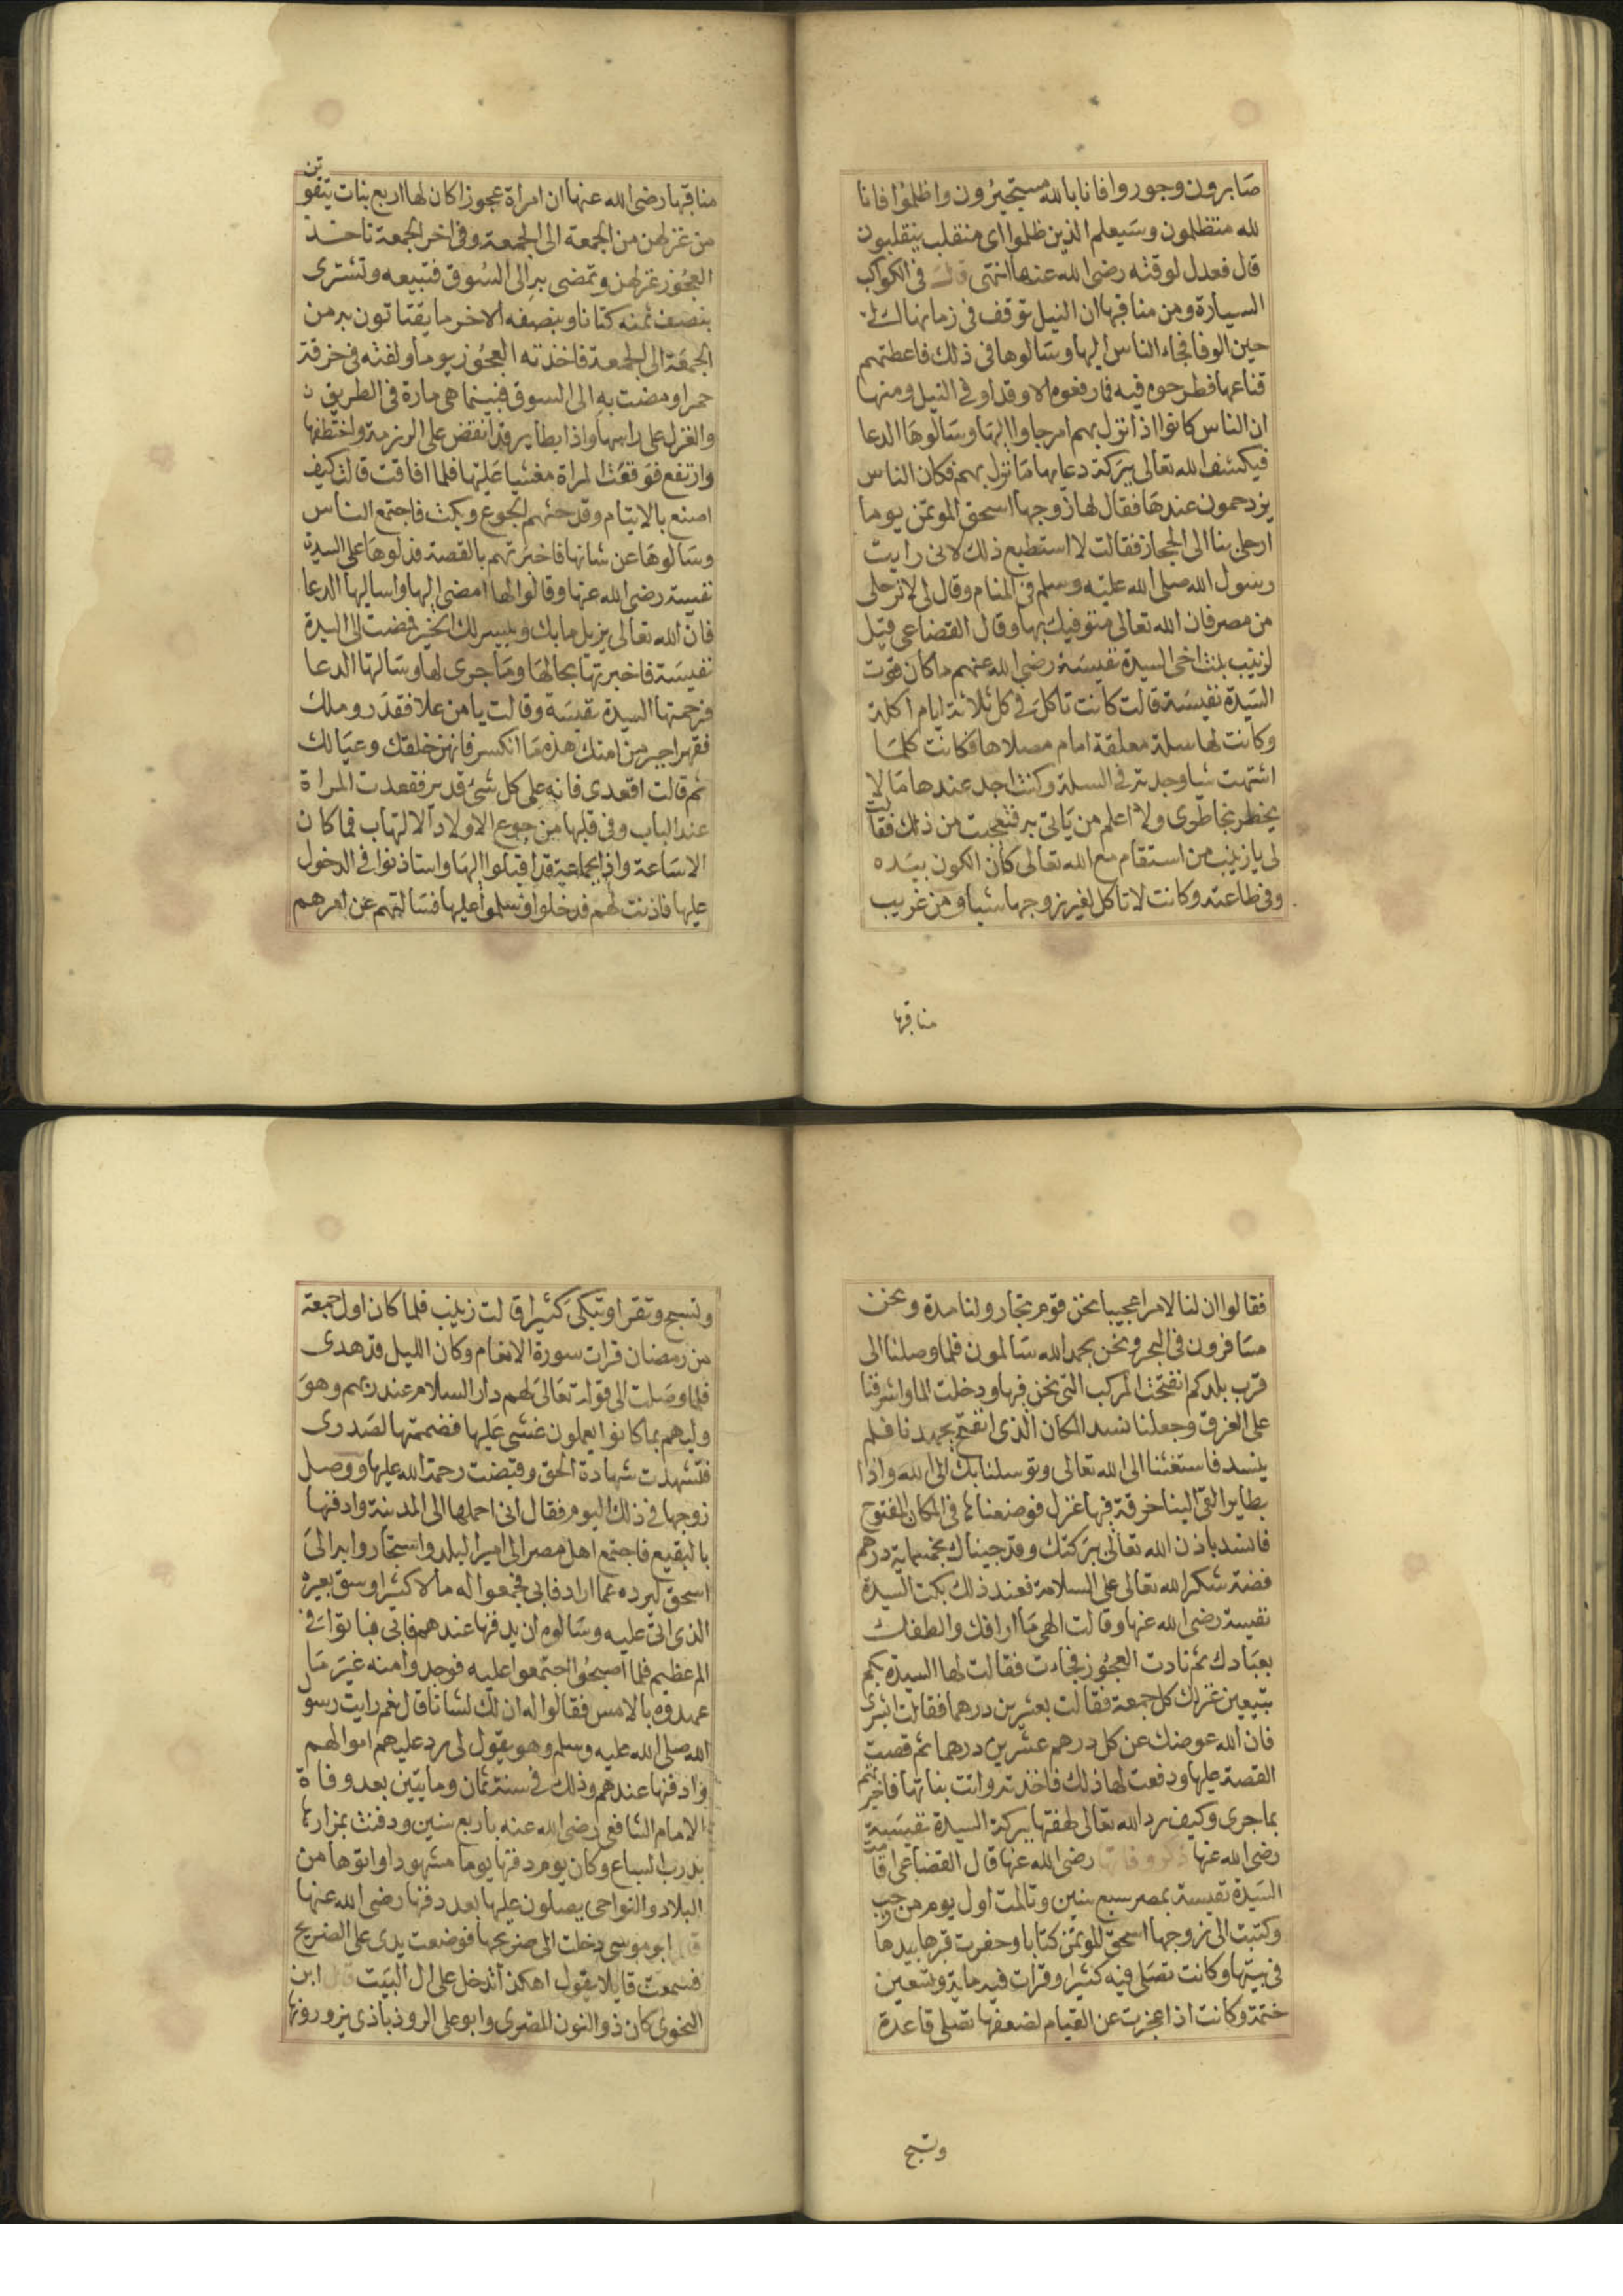 صابرون وجوروا فانا بالله مستجيرون واظلموا فانا
لله متظلمون وسيعلم الذين ظلموا اى منقلب ينقلبون
قال فعدل لوقته رضى الله عنها انتهى قلت فى الكواكب
السيارة ومن مناقبها ان النيل توقف فى زمانها الى
حين الوفا فجاء الناس اليها وسالوها فى ذلك فاعطتهم
قناعها فطرحوه فيه فما رفعوه الا وقد اوفى النيل ومنها
ان الناس كانوا اذا نزل بهم امر جاوا اليها وسالوها الدعا
فيكشف الله تعالى ببركة دعايها ما نزل بهم فكان الناس
يزدحمون عندها فقال لها زوجها اسحق الموتمن يوما
ارحلى بنا الى الحجاز فقالت لا استطيع ذلك لانى رايت
رسول الله صلى الله عليه وسلم فى المنام وقال لى لا ترحلى
من مصر فان الله تعالى متوفيك بها وقال القضاعى قيل
لزينب بنت اخى السيدة نفيسة رضى الله عنهم ما كان قوت
السيدة نفيسة قالت كانت تاكل فى كل ثلاثة ايام اكلة
وكانت لها سلة معلقة امام مصلاها فكانت كلما
اشتهت شيا وجدته فى السلة وكنت اجد عندها ما لا
يخطر بخاطرى ولا اعلم من ياتى به فتعجبت من ذلك فقالت
لى يا زينب من استقام مع الله تعالى كان الكون بيده
وفى طاعته وكانت لا تاكل لغير زوجها شيا ومن غريب
مناقبها
مناقبها رضى الله عنها ان امراة عجوزا كان لها اربع بنات يتقوتن
من غزلهن من الجمعة الى الجمعة وفى اخر الجمعة تاخذ
العجوز غزلهن وتمضى به الى السوق فتبيعه وتشترى
بنصف ثمنه كتانا وبنصفه الاخر ما يقتاتون به من
الجمعة الى الجمعة فاخذته العجوز يوما ولفته فى خرقة
حمرا ومضت به الى السوق فبينما هى مارة فى الطريق
والغزل على راسها واذا بطاير قد انقض على الرزمة واختطفها
وارتفع فوقعت المراة مغشيا عليها فلما افاقت قالت كيف
اصنع بالايتام وقد جئتهم الجوع وبكت فاجتمع الناس
وسالوها عن شانها فاخبرتهم بالقصة فدلوها على السيدة
نفيسة رضى الله عنها وقالوا لها امضى اليها واساليها الدعا
فان الله تعالى يزيل ما بك وييسر لك الخير فمضت الى السيدة
نفيسة فاخبرتها بحالها وما جرى لها وسالتها الدعا
فرحمتها السيدة نفيسة وقالت يا من علا فقدر وملك
فقهر اجبر من امتك هذه ما انكسر فانهن خلقك وعيالك
ثم قالت اقعدى فانه على كل شىء قدير فقعدت المراة
عند الباب وفى قلبها من جوع الاولاد الالتهاب فما كان
الا ساعة واذا بجماعة قد اقبلوا اليها واستاذنوا فى الدخول
عليها فاذنت لهم فدخلوا وسلموا عليها فسالتهم عن امرهم
فقالوا ان لنا لامرا عجيبا نحن قوم تجار ولنا مدة ونحن
مسافرون فى البحر ونحن بحمد الله سالمون فلما وصلنا الى
قرب بلدكم انفتحت المركب التى نحن فيها ودخلت الما واشرفنا
على الغرق وجعلنا نسد المكان الذى انفتح بجهدنا فلم
ينسد فاستغثنا الى الله تعالى وتوسلنا بك الى الله واذا
بطاير القى الينا خرقة فيها غزل فوضعناها فى المكان المفتوح
فانسد باذن الله تعالى ببركتك وقد جيناك بخمسماية درهم
فضة شكرا لله تعالى على السلامة فعند ذلك بكت السيدة
نفيسة رضى الله عنها وقالت الهى ما ارافك والطفك
بعبادك ثم نادت العجوز فجاءت فقالت لها السيدة بكم
تبيعين غزلك كل جمعة فقالت بعشرين درهما فقالت ابشرى
فان الله عوضك عن كل درهم عشرين درهما ثم قصت
القصة عليها ودفعت لها ذلك فاخذته واتت بناتها فاخبرتهم
بما جرى وكيف رد الله تعالى لهفتها ببركة السيدة نفيسة
رضى الله عنها ذكر وفاتها رضى الله عنها قال القضاعى اقامت
السيدة نفيسة بمصر سبع سنين وتالمت اول يوم من رجب
وكتبت الى زوجها اسحق الموتمن كتابا وحفرت قبرها بيدها
فى بيتها وكانت تصلى فيه كثيرا وقرات فيه ماية وتسعين
ختمة وكانت اذا عجزت عن القيام لضعفها تصلى قاعدة
وتسبح
وتسبح وتقرا وتبكى كثيرا قالت زينب فلما كان اول جمعة
من رمضان قرات سورة الانعام وكان الليل قد هدى
فلما وصلت الى قوله تعالى لهم دار السلام عند ربهم وهو
وليهم بما كانوا يعملون غشى عليها فضممتها لصدرى
فتشهدت شهادة الحق وقبضت رحمة الله عليها ووصل
زوجها فى ذلك اليوم فقال انى احملها الى المدينة وادفنها
بالبقيع فاجتمع اهل مصر الى امير البلد واستجاروا به الى
اسحق ليرده عما اراد فابى فجمعوا له مالا كثيرا وسق بعيره
الذى اتى عليه وسالوه ان يدفنها عندهم فابى فباتوا فى
الم عظيم فلما اصبحوا اجتمعوا عليه فوجدوا منه غير ما
عهدوه بالامس فقالوا له ان لك لشانا قال نعم رايت رسول
الله صلى الله عليه وسلم وهو يقول لى رد عليهم اموالهم
وادفنها عندهم وذلك فى سنة ثمان ومايتين بعد وفاة
الامام الشافعى رضى الله عنه باربع سنين ودفنت بمزارها
بدرب السباع وكان يوم دفنها يوما مشهودا واتوها من
البلاد والنواحى يصلون عليها بعد دفنها رضى الله عنها
قال ابو موسى دخلت الى ضريحها فوضعت يدى على الضريح
فسمعت قايلا يقول اهكذا تدخل على ال البيت قال ابن
النحوى كان ذو النون المصرى وابو على الروذباذى يزورونها